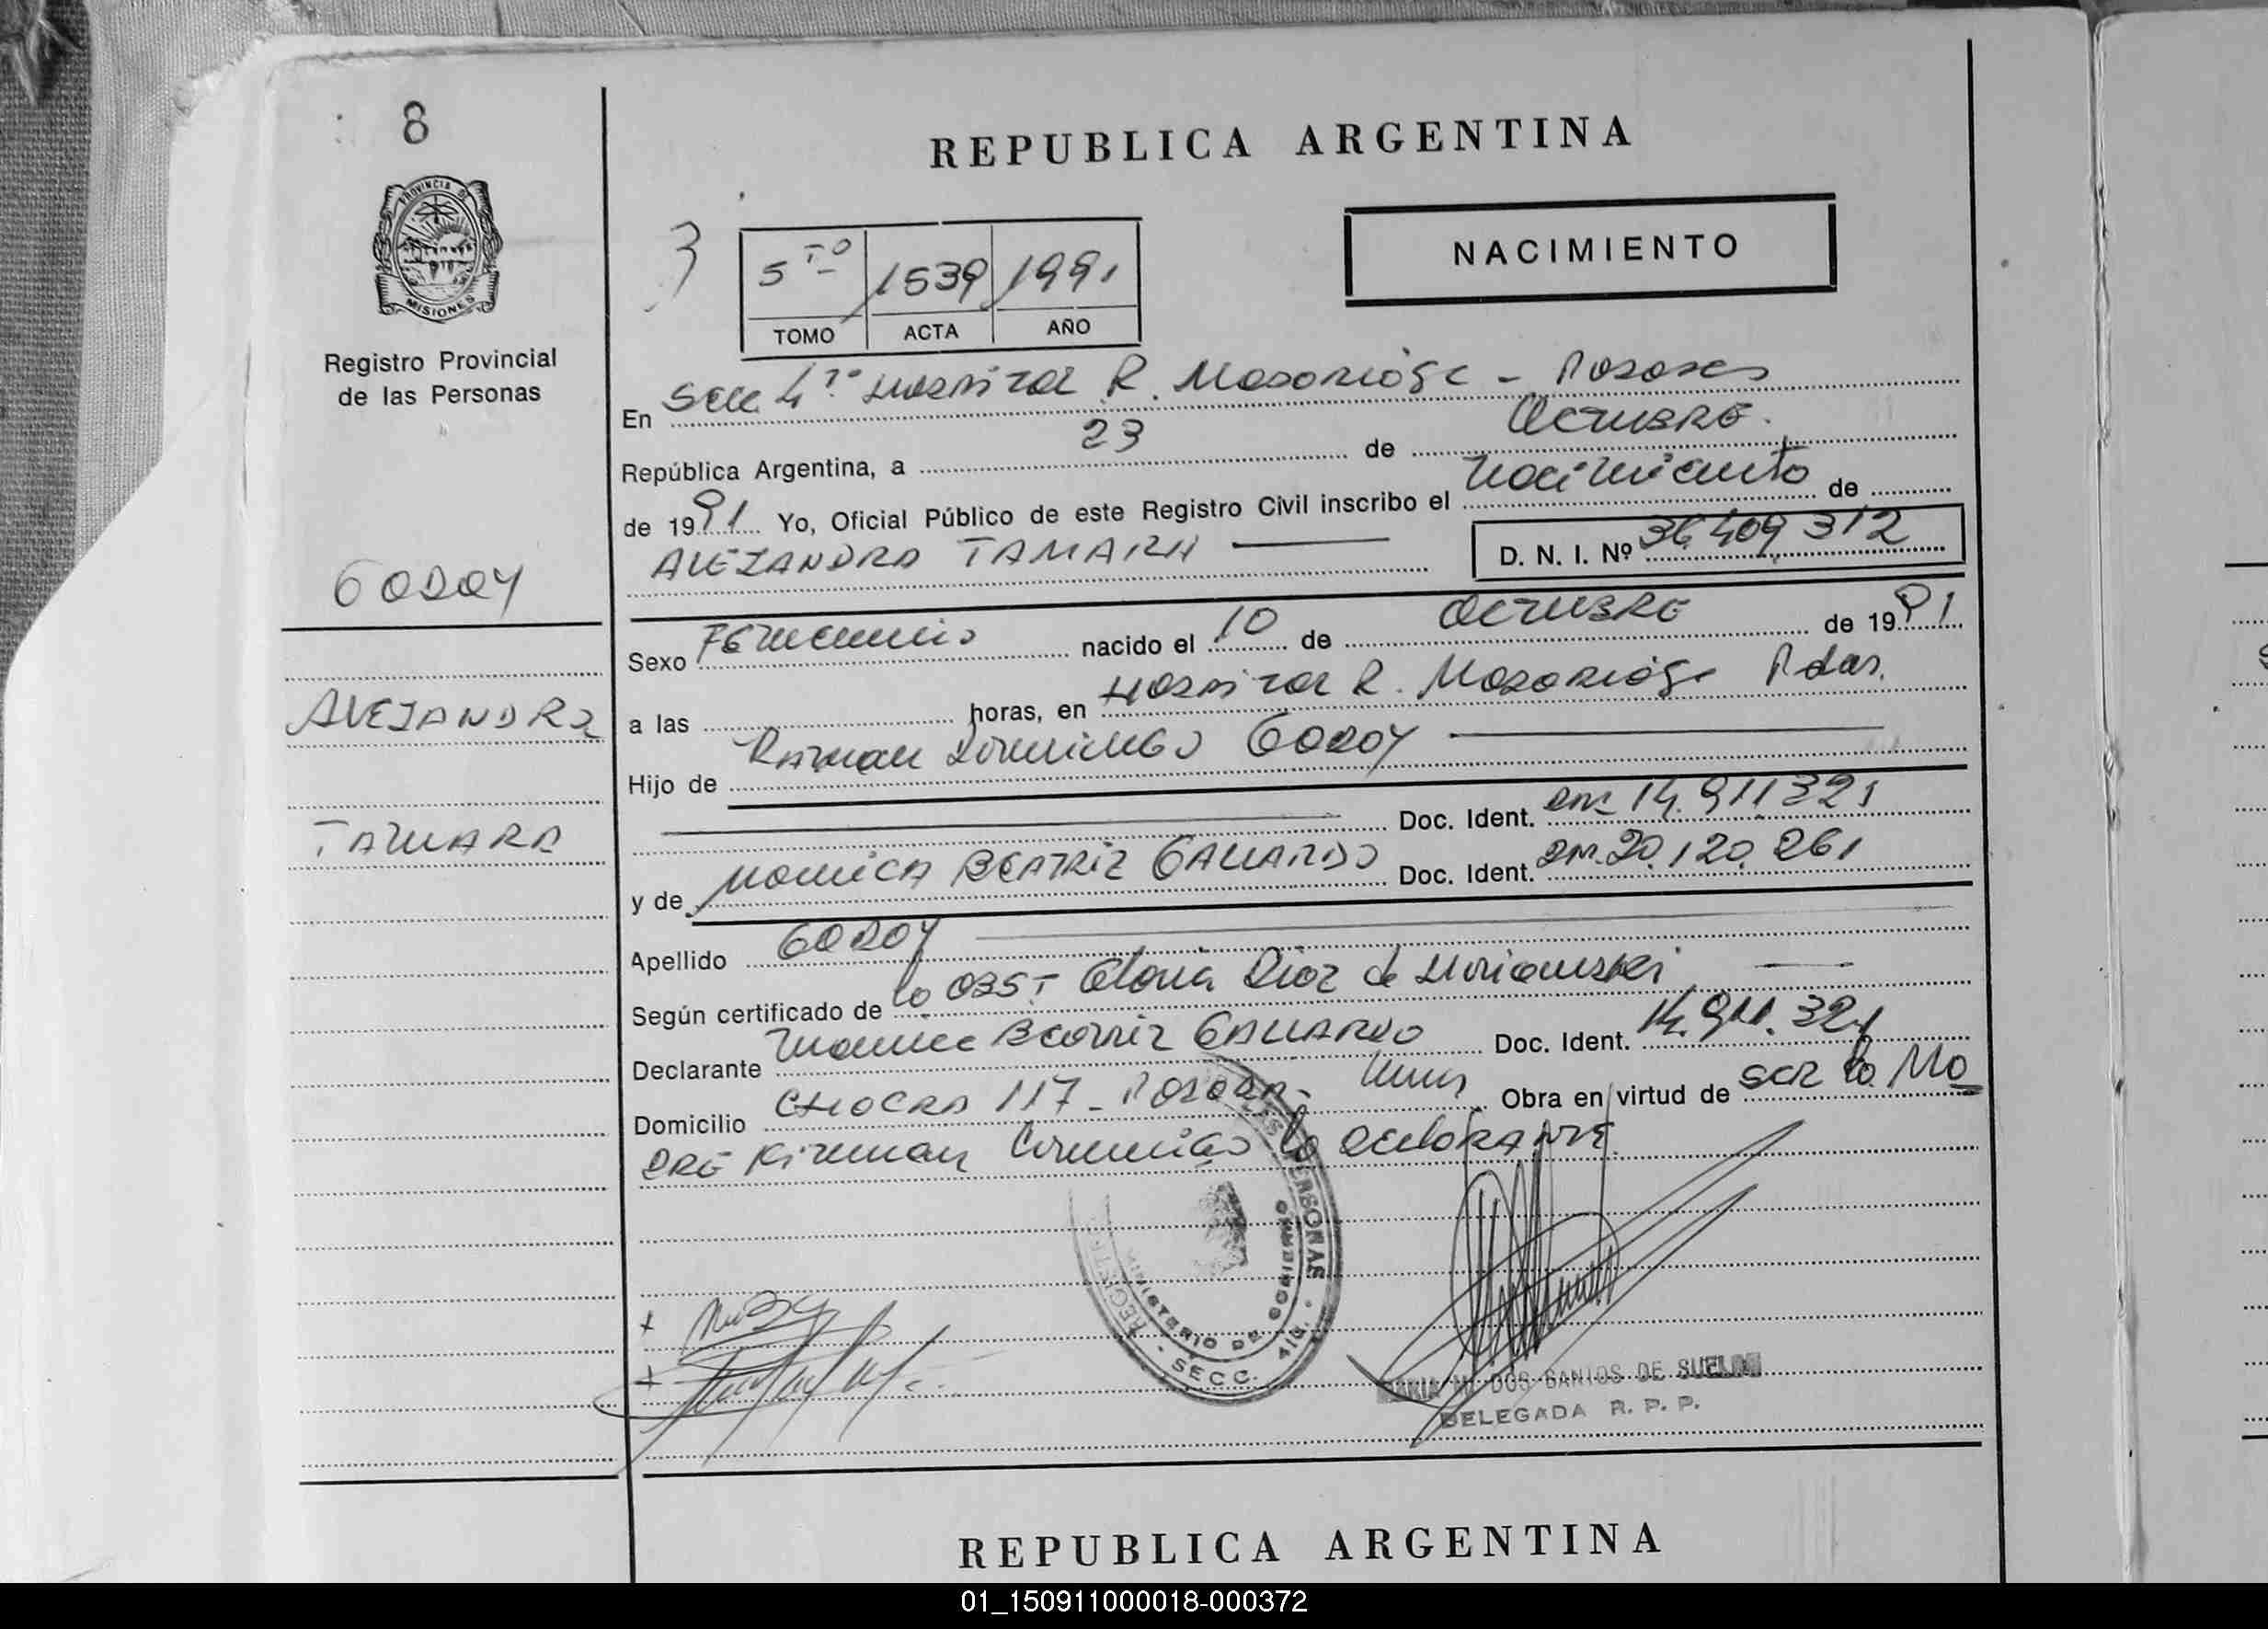 8
REPUBLICA ARGENTINA
PROVINCIA DE
MISIONES
3
5 TO 1539 1991
TOMO ACTA AÑO
NACIMIENTO
Registro Provincial
de las Personas
En Secc 4ta Hospital R. Madariaga - Posadas
República Argentina, a 23 de Octubre.
de 1991 Yo, Oficial Público de este Registro Civil inscribo el nacimiento de
ALEJANDRA TAMARA D. N. I. Nº 36.409.312
GODOY
ALEJANDRA
TAMARA
Sexo Femenino nacido el 10 de Octubre de 1991
a las horas, en Hospital R. Madariaga Pdas.
Hijo de Ramon Domingo GODOY
Doc. Ident. DNI 14.911.321
y de MONICA BEATRIZ GALLARDO Doc. Ident. DNI 20.120.261
Apellido GODOY
Según certificado de la OBST Gloria Diaz de
Declarante Monica Beatriz GALLARDO Doc. Ident. 14.911.321
Domicilio CHACRA 117 - Posadas - Mnes Obra en virtud de ser la MA
DRE Firman Conmigo la DECLARANTE
REGISTRO PERSONAS
MINISTERIO DE GOBIERNO
SECC. 4ta.
MARIA M. DOS SANTOS DE SUELDO
DELEGADA R. P. P.
REPUBLICA ARGENTINA
01_150911000018-000372